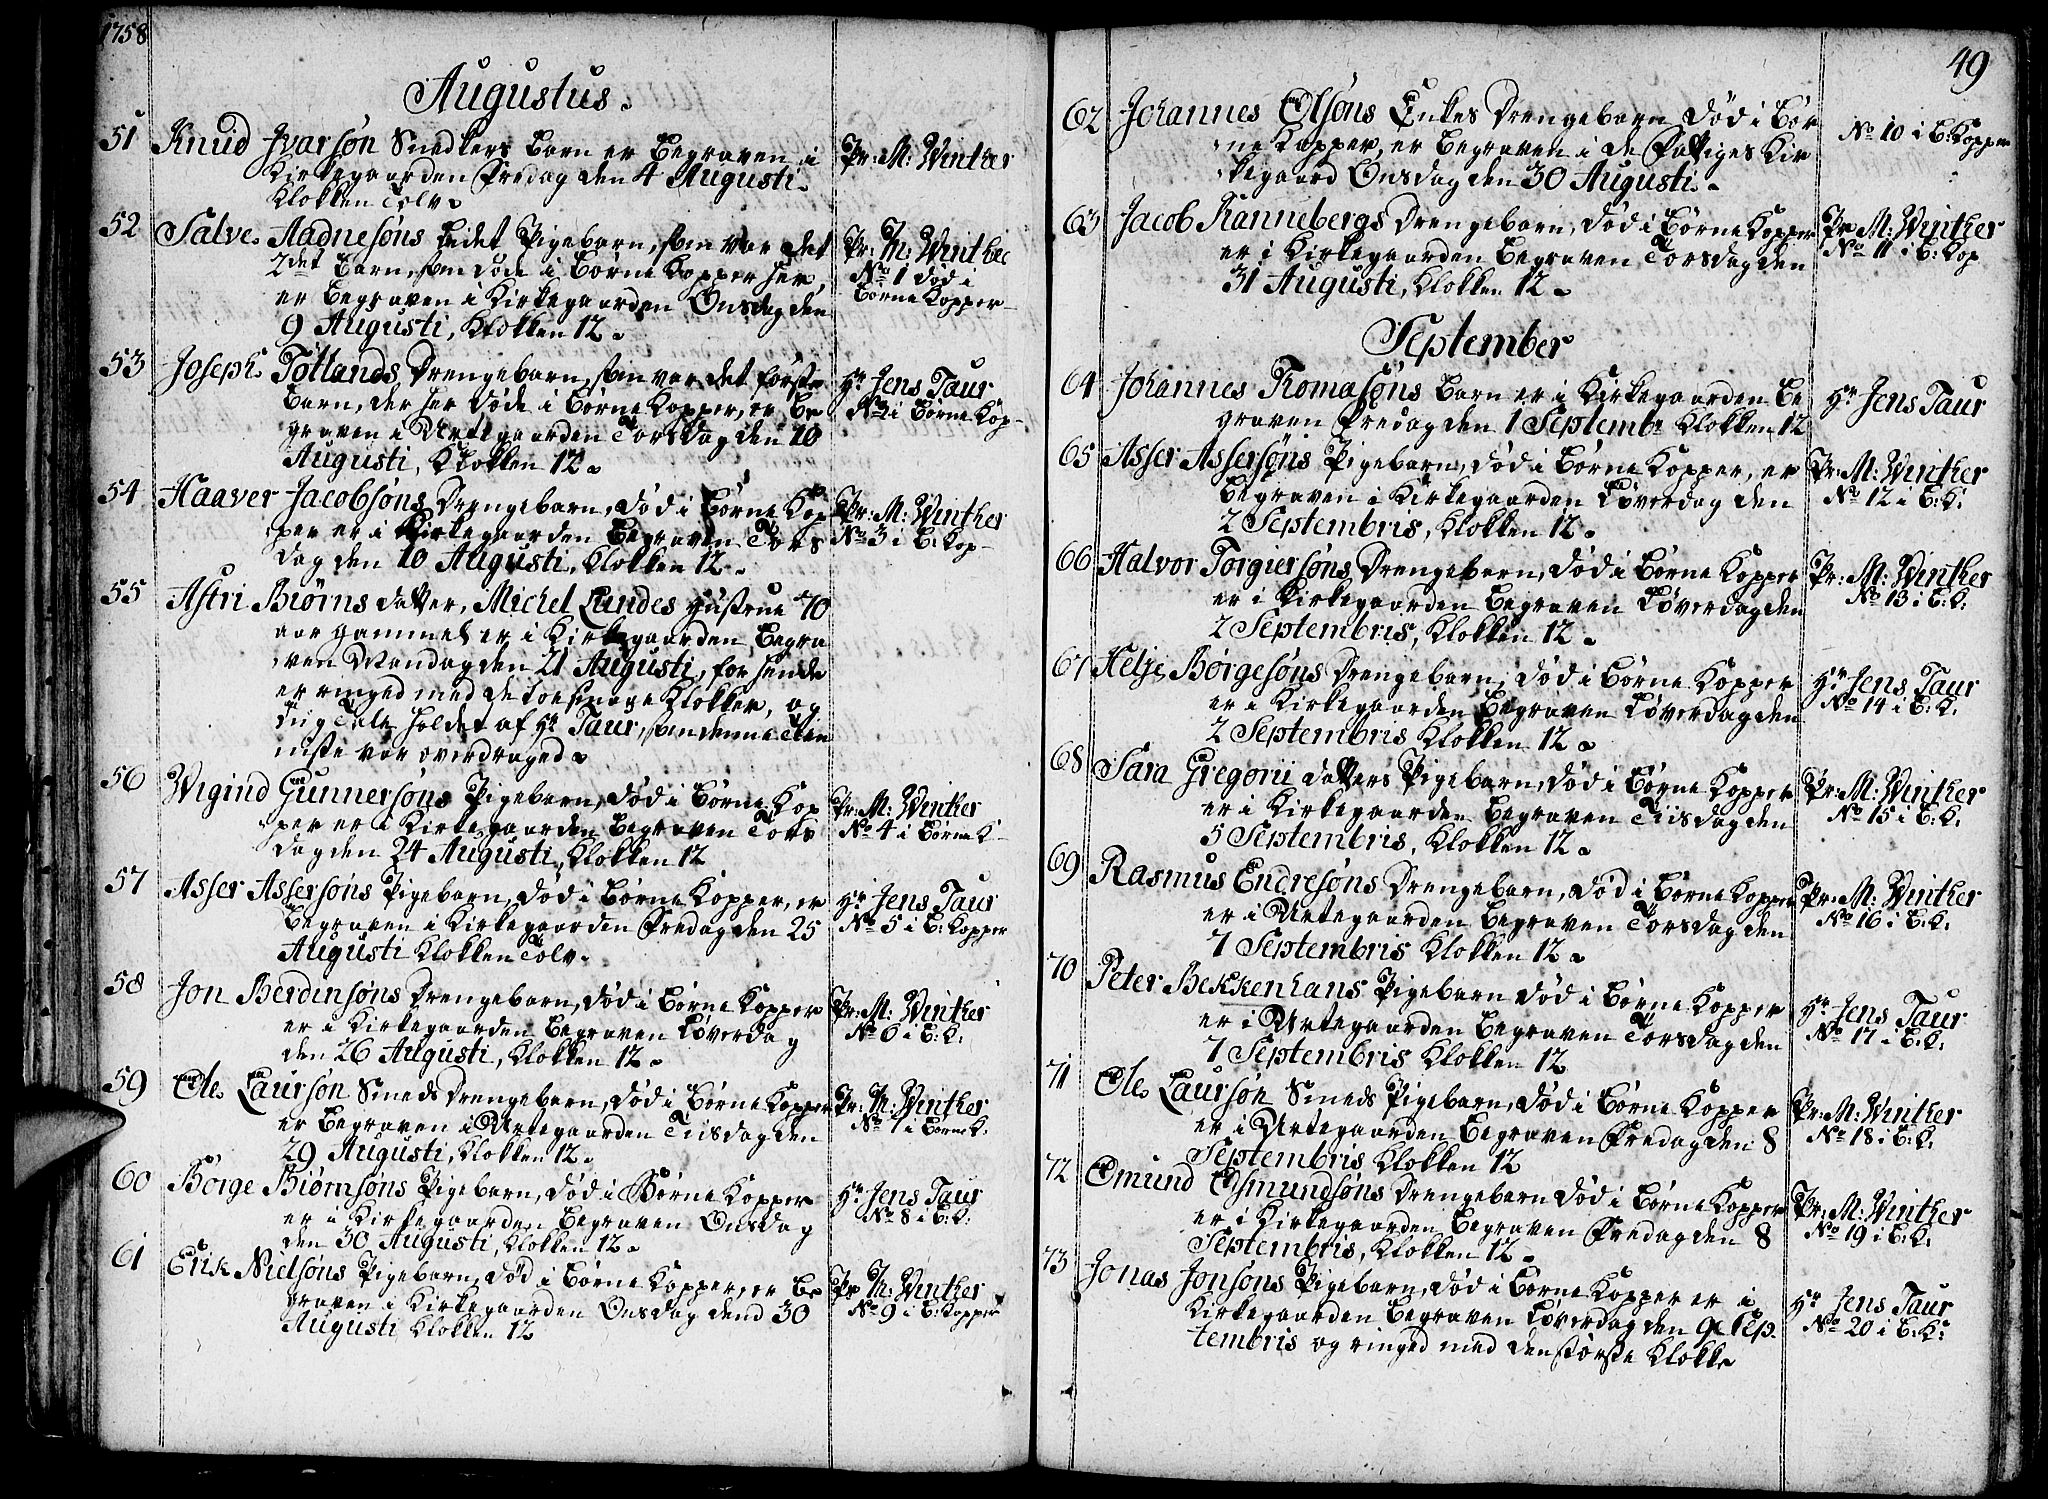 1758
Augustus.
51 Knud Ivarsøn Snedkers Barn er Begraven i
Kirkegaarden Fredag den 4 Augusti
Klokken Tolv.
Pr: M: Winther
52 Salve Aadnesøns lidet Pigebarn, som var det
2det Barn, som døde i BørneKopper her,
er Begraven i Kirkegaarden Onsdag den
9 Augusti, Klokken 12.
Pr: M: Winther
No 1 død i
BørneKopper
53 Joseph Tøtlands Drengebarn, som var det første
Barn, der her døde i BørneKopper, er Be
graven i Urtegaarden Torsdag den 10
Augusti, Klokken 12.
Hr Jens Taur
No 2 i BørneKop-
54 Haaver Jacobsøns Drengebarn, død i BørneKop
per er i Kirkegaarden Begraven Tors
dag den 10 Augusti, Klokken 12.
Pr: M: Winther
No 3 i B: Kop-
55 Astri Biørns datter, Michel Lundes Hustrue 70
aar gammel er i Kirkegaarden Begra
ven Mandag den 21 Augusti, for hende
er ringed med de toe Klokker, og
Liig Tale holdet af Hr Taur, som denne Tien
niste var overdraged.
56 Wigind Gunnersøns Pigebarn, død i BørneKop
per er i Kirkegaarden Begraven Tors
dag den 24 Augusti, Klokken 12
Pr: M: Winther
No 4 i BørneK-
57 Asser Assersøns Pigebarn, død i BørneKopper, er
Begraven i Kirkegaarden Fredag den 25
Augusti Klokken Tolv.
Hr Jens Taur
No 5 i B: Kopper
58 Jon Berdinsøns Drengebarn, død i BørneKopper
er i Kirkegaarden Begraven Løverdag
den 26 Augusti, Klokken 12.
Pr: M: Winther
No 6 i B: K.
59 Ole Laursøn Smeds Drengebarn, død i BørneKopper
er Begraven i Urtegaarden Tiisdag den
29 Augusti, Klokken 12.
Pr: M: Winther
No 7 i BørneK.
60 Børge Biørnsøns Pigebarn, død i BørneKopper
er i Kirkegaarden Begraven Onsdag
den 30 Augusti, Klokken 12.
Hr Jens Taur
No 8 i B: K.
61 Erik Nielsøns Pigebarn, død i BørneKopper, er Be
graven i Kirkegaarden Onsdag dend 30
Augusti, Klokken 12
Pr M: Winther
No 9 i B: Kopper
49
62 Johannes Olsøns Enkes Drengebarn, død i Bør
neKopper, er Begraven i de Fattiges Kir
kegaard Onsdag den 30 Augusti.
No 10 i B: Kopper
63 Jacob Kannebergs Drengebarn, død i BørneKopper
er i Kirkegaarden Begraven Torsdag den
31 Augusti, Klokken 12.
Pr M: Winther
No 11 i B: Kop
September
64 Johannes Thomasøns Barn er i Kirkegaarden Be
graven Fredag den 1 Septembr Klokken 12
Hr Jens Taur
65 Asser Assersøns Pigebarn, død i BørneKopper, er
Begraven i Kirkegaarden Løverdag den
2 Septembris, Klokken 12.
Pr: M: Winther
No 12 i B: K:
66 Halvor Torgiersøns Drengebarn, død i BørneKopper
er i Kirkegaarden Begraven Løverdag den
2 Septembris, Klokken 12.
Pr: M: Winther
No 13 i B: K:
67 Helje Børgesøns Drengebarn, død i BørneKopper
er i Kirkegaarden Begraven Løverdag den
2 Septembris Klokken 12.
Hr Jens Taur
No 14 i B: K.
68 Sara Gregorii datters Pigebarn, død i BørneKopper
er i Kirkegaarden Begraven Tiisdag den
5 Septembris, Klokken 12.
Pr: M: Winther
No 15 i B: K.
69 Rasmus Endresøns Drengebarn, død i BørneKopper
er i Urtegaarden Begraven Torsdag den
7 Septembris Klokken 12.
Pr: M: Winther
No 16 i B: K.
70 Peter Bekkenhans Pigebarn død i BørneKopper
er i Urtegaarden Begraven Torsdag den
7 Septembris Klokken 12
Hr Jens Taur
No 17 i B: K.
71 Ole Laursøn Smeds Pigebarn, død i BørneKopper
er i Urtegaarden Begraven Fredag den 8
Septembris Klokken 12
Pr: M: Winther
No 18 i B: K.
72 Omund Osmundsøns Drengebarn død i BørneKopper
er i Kirkegaarden Begraven Fredag den 8
Septembris, Klokken 12.
Pr: M: Winther
No 19 i B: K.
73 Jonas Jonsøns Pigebarn, død i BørneKopper er i
Kirkegaarden Begraven Løverdag den 9 Sep
tembris og ringed med den største Klokke
Hr Jens Taur
No 20 i B: K: